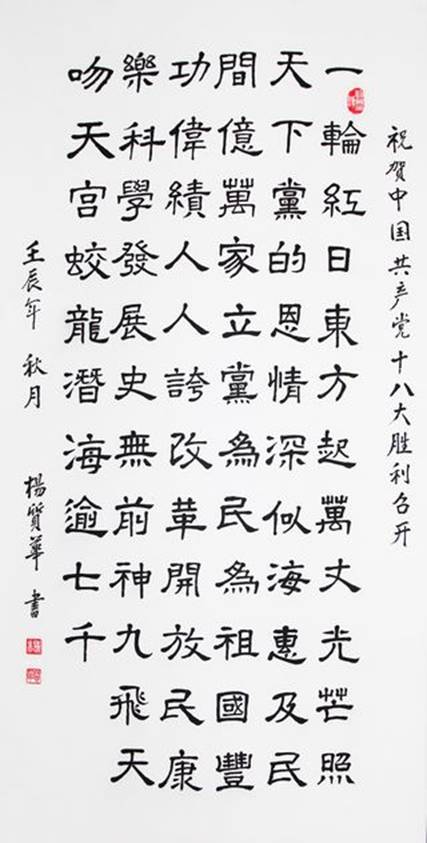 祝贺中国共产党十八大胜利召开
一輪紅日東方起萬丈光芒照
天下黨的恩情深似海惠及民
間億萬家立黨為民為祖國豐
功偉績人人誇改革開放民康
樂科學發展史無前神九飛天
吻天宫蛟龍潛海逾七千
壬辰年 秋月 楊質華 書